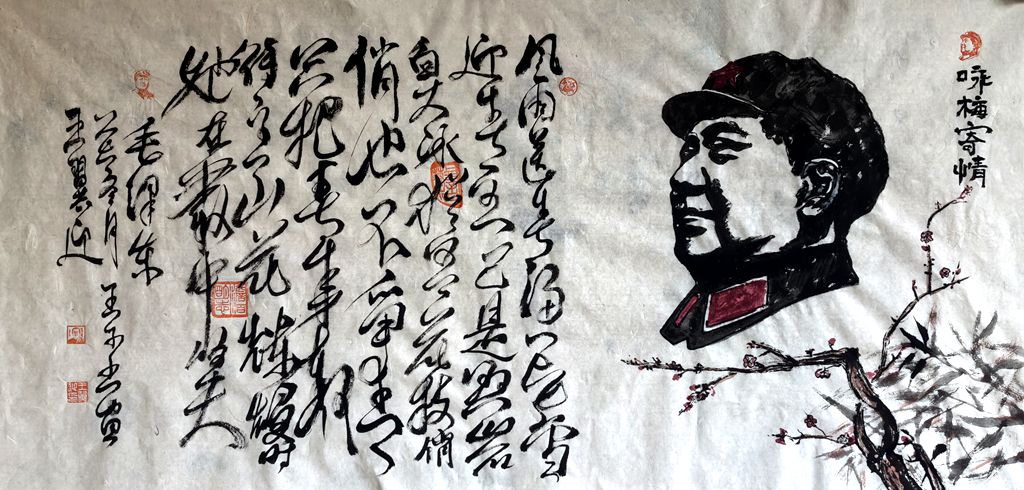 咏梅寄情
风雨送春归飞雪
迎春到已是悬岩
百丈冰犹有花枝俏
俏也不争春
只把春来报
待到山花烂漫时
她在丛中笑
毛泽东
冬月